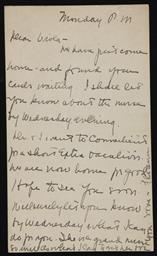 Monday P.M
Dear Viola -
We have just come
home - and found your
card waiting. I shall let
you know about the nurse
by Wednesday evening.
Dr & I went to Connecticut
for a short extra vacation.
We are now home for good.
Hope to see you soon.
Will surely let you know
by Wednesday what I can
do for you.